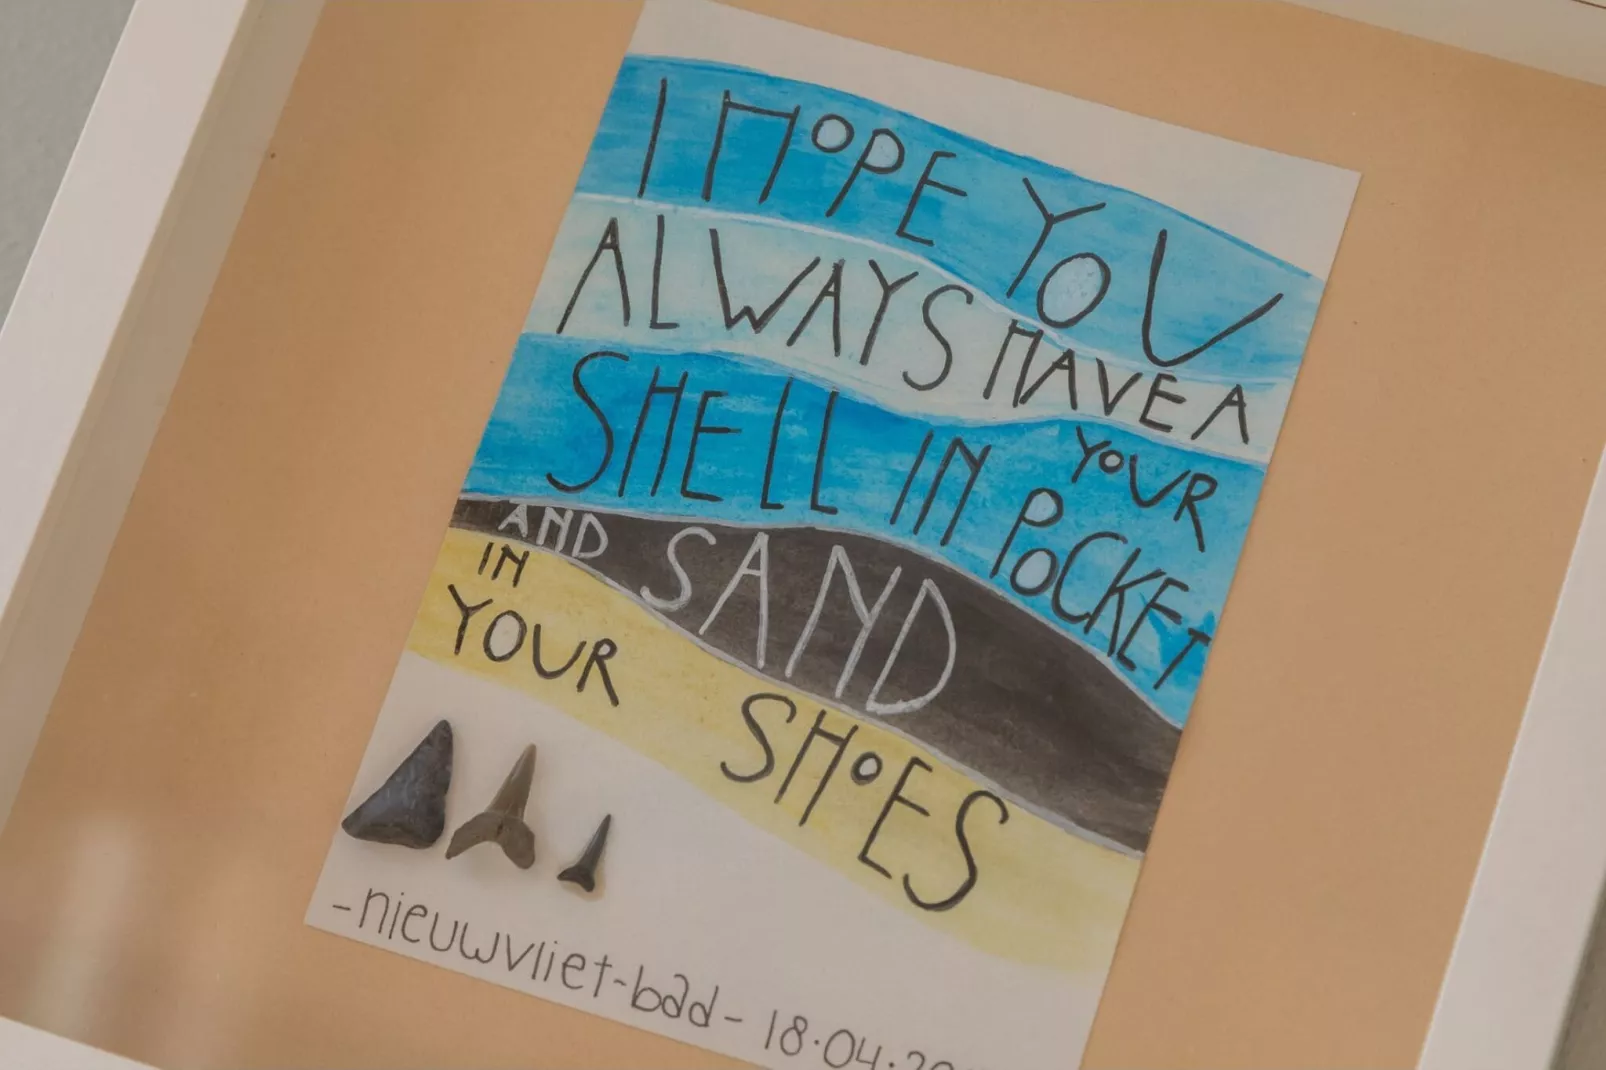 I HOPE YOU
ALWAYS HAVE A
SHELL IN YOUR
POCKET
AND SAND
IN
YOUR SHOES
-nieuwvliet-bad- 18.04.20